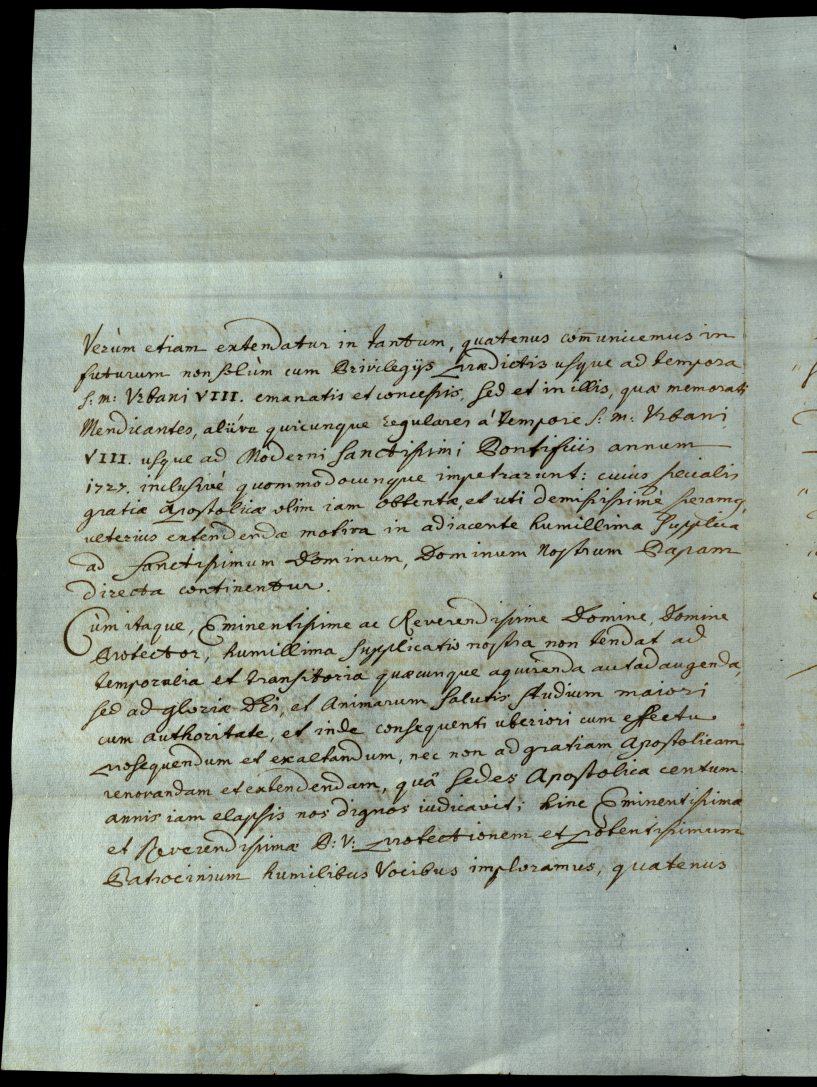 Verùm etiam extendatur in tantum, quatenus com̃unicemus in
futurum non solùm cum Privilegijs prædictis usque ad tempora
s: m: Vrbani VIII. emanatis et concessis, sed et in illis, quæ memorati
Mendicantes, aliive quicunque regulares á tempore s: m: Vrbani
VIII. usque ad Moderni sanctissimi Pontificis annum
1727. inclusivé quommodocunque impetrarunt: cuius specialis
gratiæ Apostolicæ olim iam obtentæ, et uti demississime speramus,
ulterius extendendæ motiva in adiacente humillima supplica
ad sanctissimum Dominum, Dominum Nostrum Papam
directa continentur.
Cùm itaque, Eminentissime ac Reverendissime Domine, Domine
Protector, humillima supplicatio nostra non tendat ad
temporalia et transitoria quæcunque aquirenda aut adaugenda,
sed ad gloriæ DEi, et Animarum Salutis studium maiori
cum authoritate, et inde consequenti uberiori cum effectu
prosequendum et exaltandum, nec non ad gratiam Apostolicam
renovandam et extendendam, quâ Sedes Apostolica centum
annis iam elapsis nos dignos iudicavit; hinc Eminentissimæ
et Reverendissimæ D: V: protectionem et potentissimum
Patrocinium humilibus Vocibus imploramus, quatenus